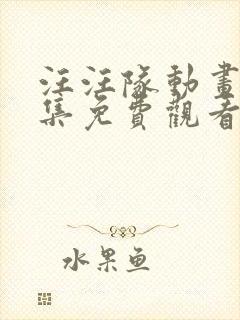 汪汪隊動畫
集免費觀看
水果鱼